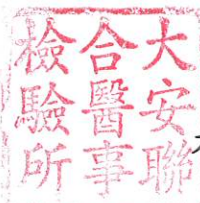 大安聯
合醫事
檢驗所